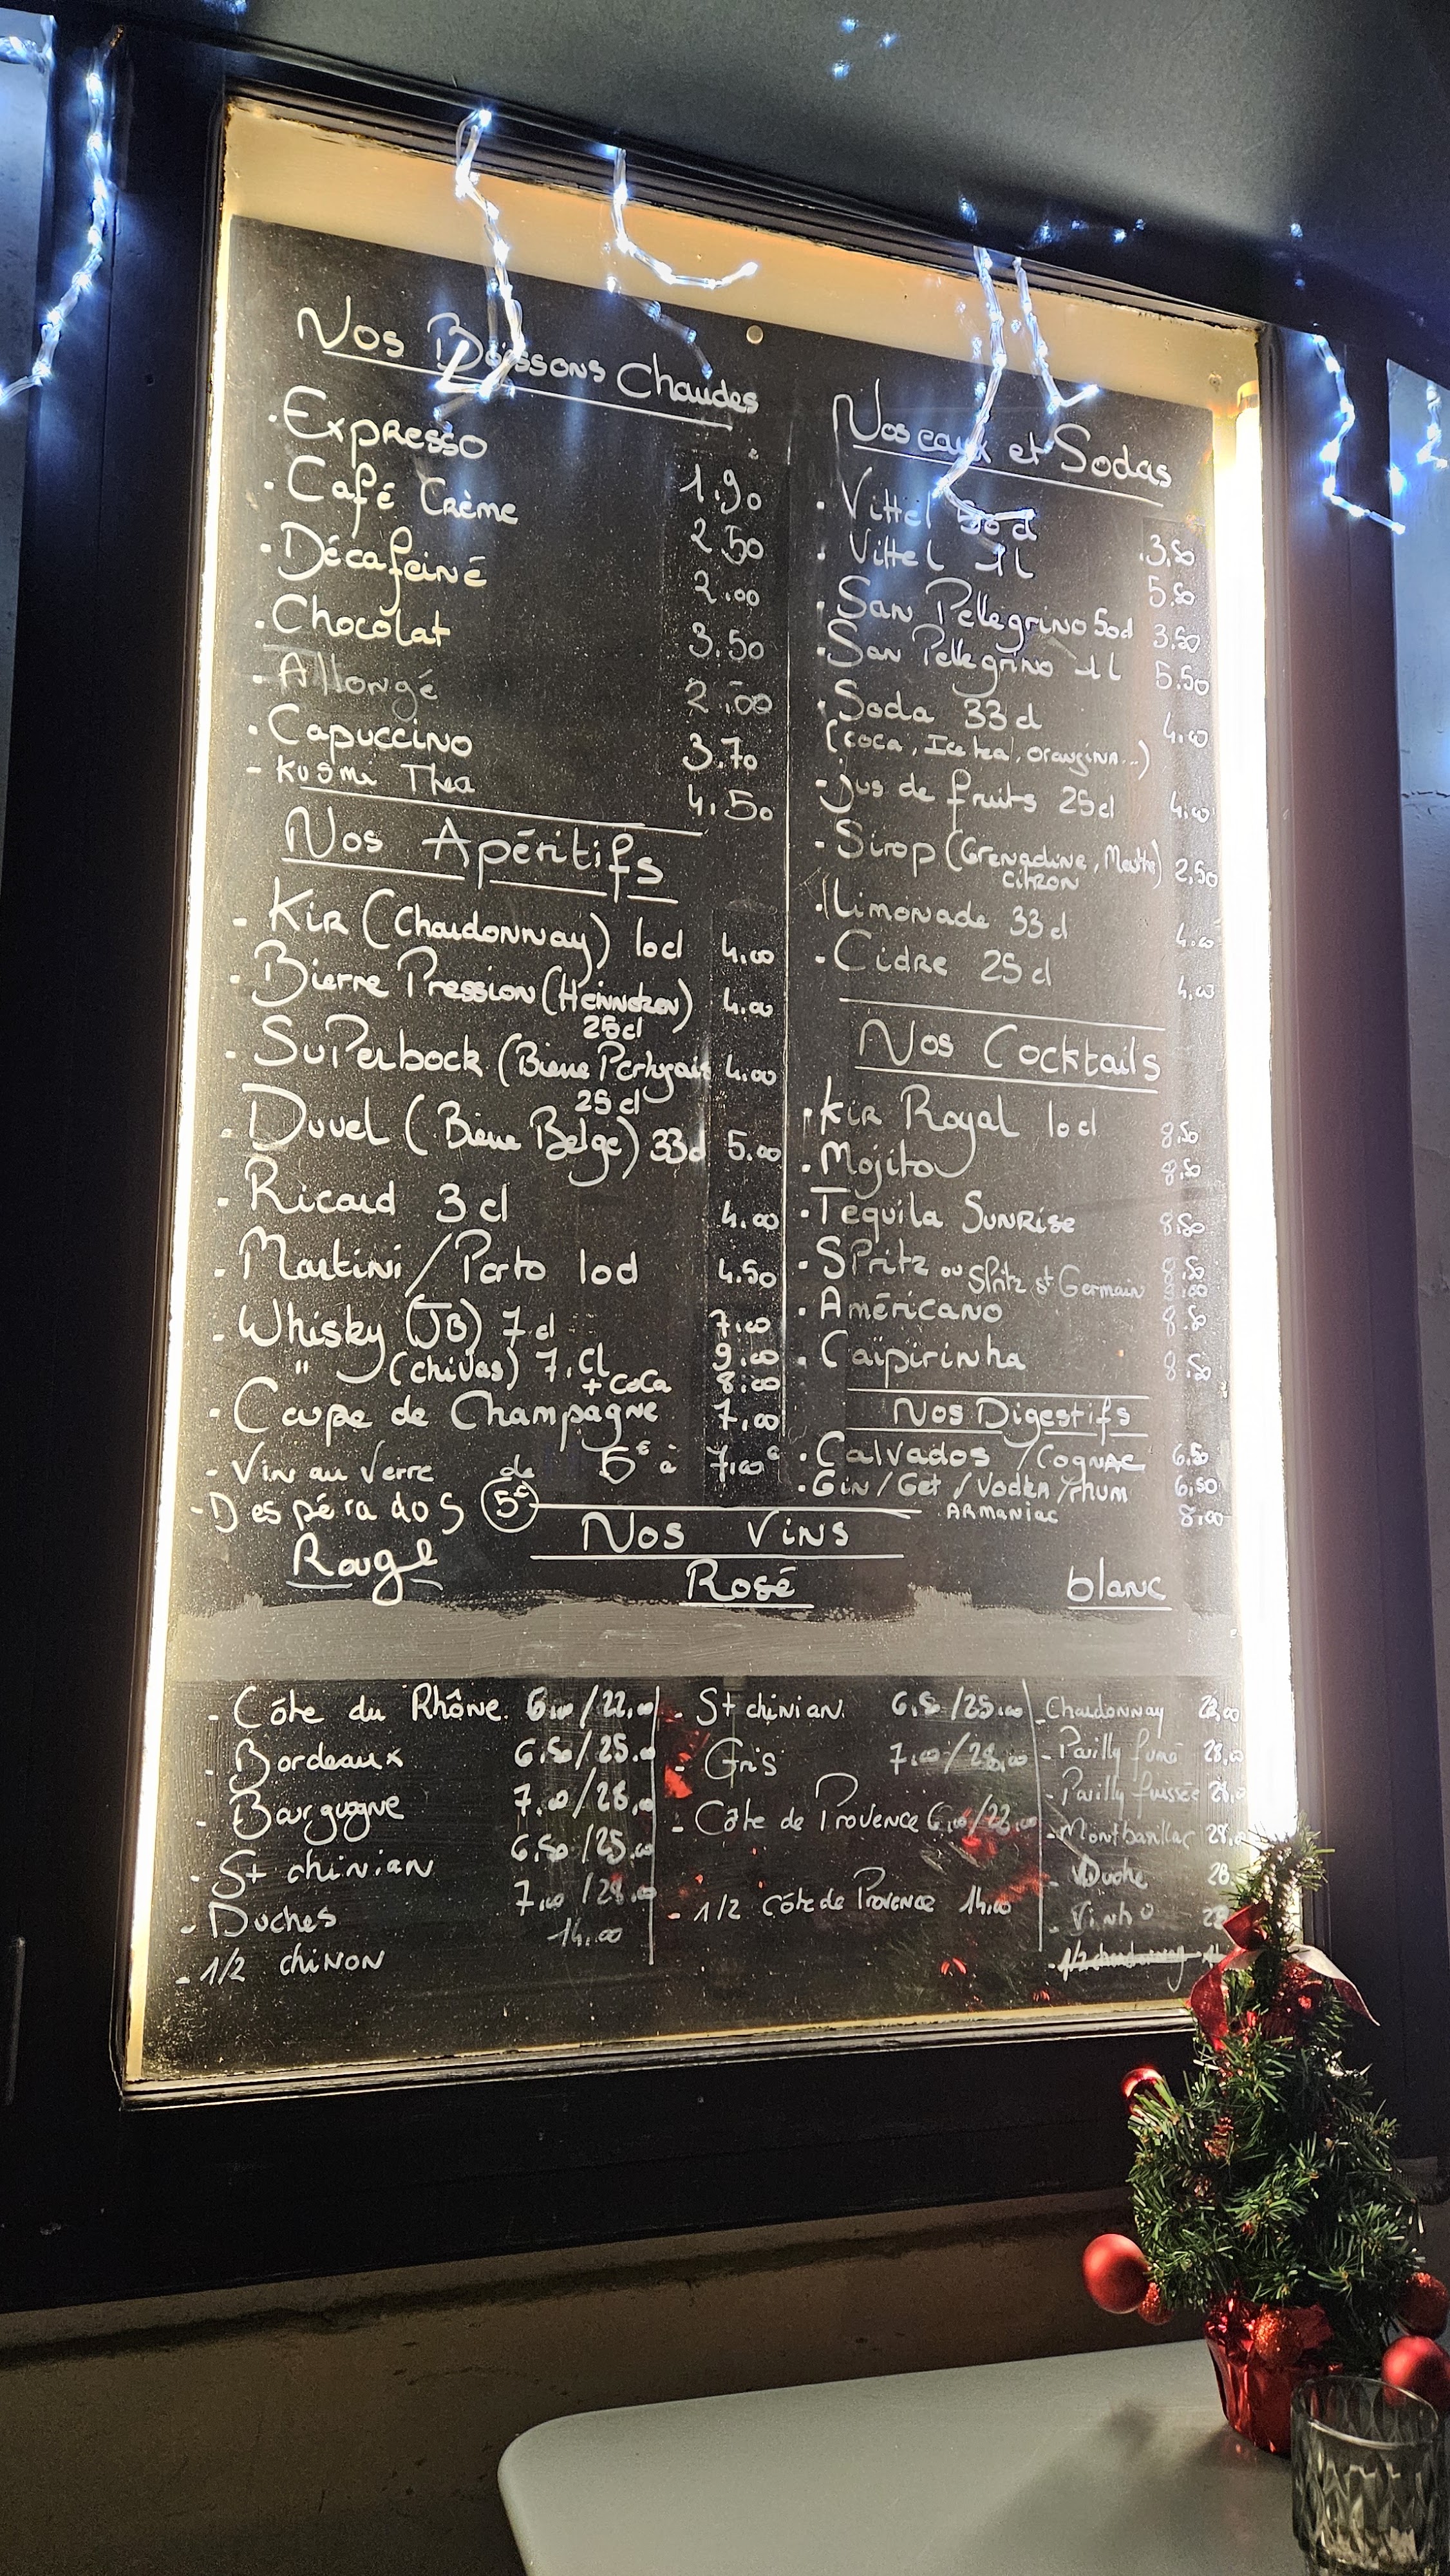 Nos Boissons Chaudes
. Expresso 1.90
. Café Crème 2.50
. Décafeiné 2.00
. Chocolat 3.50
. Allongé 2.00
. Capuccino 3.70
- Kusmi Thea 4.50
Nos Apéritifs
- Kir (Chardonnay) 10cl 4.00
. Bierre Pression (Heinneken) 4.00
25cl
- SuPerbock (Biere Portugais 4.00
25cl
- Duvel (Biere Belge) 33cl 5.00
- Ricard 3cl 4.00
. Martini/Porto 10cl 4.50
- Whisky (JB) 7cl 7.00
" (chivas) 7.cl 9.00
+ coca 8.00
. Coupe de Champagne 7,00
- Vin au Verre de 5€ à 7,00€
- Despérados 5€
Nos eaux et Sodas
. Vittel 50cl 3.50
. Vittel 1l 5.50
. San Pellegrino 50cl 3.50
. San Pellegrino 1l 5.50
. Soda 33cl 4.00
(coca, Ice tea, orangina...)
- Jus de fruits 25cl 4.00
- Sirop (Grenadine, Menthe) 2,50
citron
. Limonade 33cl 4.00
. Cidre 25cl 4,00
Nos Cocktails
. Kir Royal 10cl 8.50
. Mojito 8.50
. Tequila Sunrise 8.50
. SPritz ou SPritz st Germain 8.50
. Américano 8.50
. Caïpirinha 8.50
Nos Digestifs
. Calvados /Cognac 6.50
. Gin/Get/Vodka/rhum 6,50
Armaniac 8,00
Nos Vins
Rouge
- Côte du Rhône. 6.00/22,00
- Bordeaux 6.50/25.00
- Bourgogne 7.00/28,00
- St chinian 6.50/25,00
- Duches 7,00/28,00
- 1/2 chinon 14.00
Rosé
- St chinian. 6.5/25.00
- Gris 7.00/28,00
- Côte de Provence 6,00/22,00
- 1/2 Côte de Provence 14,00
blanc
- Chardonnay 22,00
- Pailly fumé 28,00
- Pailly fuissée 28,0
- Montbasillac 28,0
- Duche 28.
- Vinho